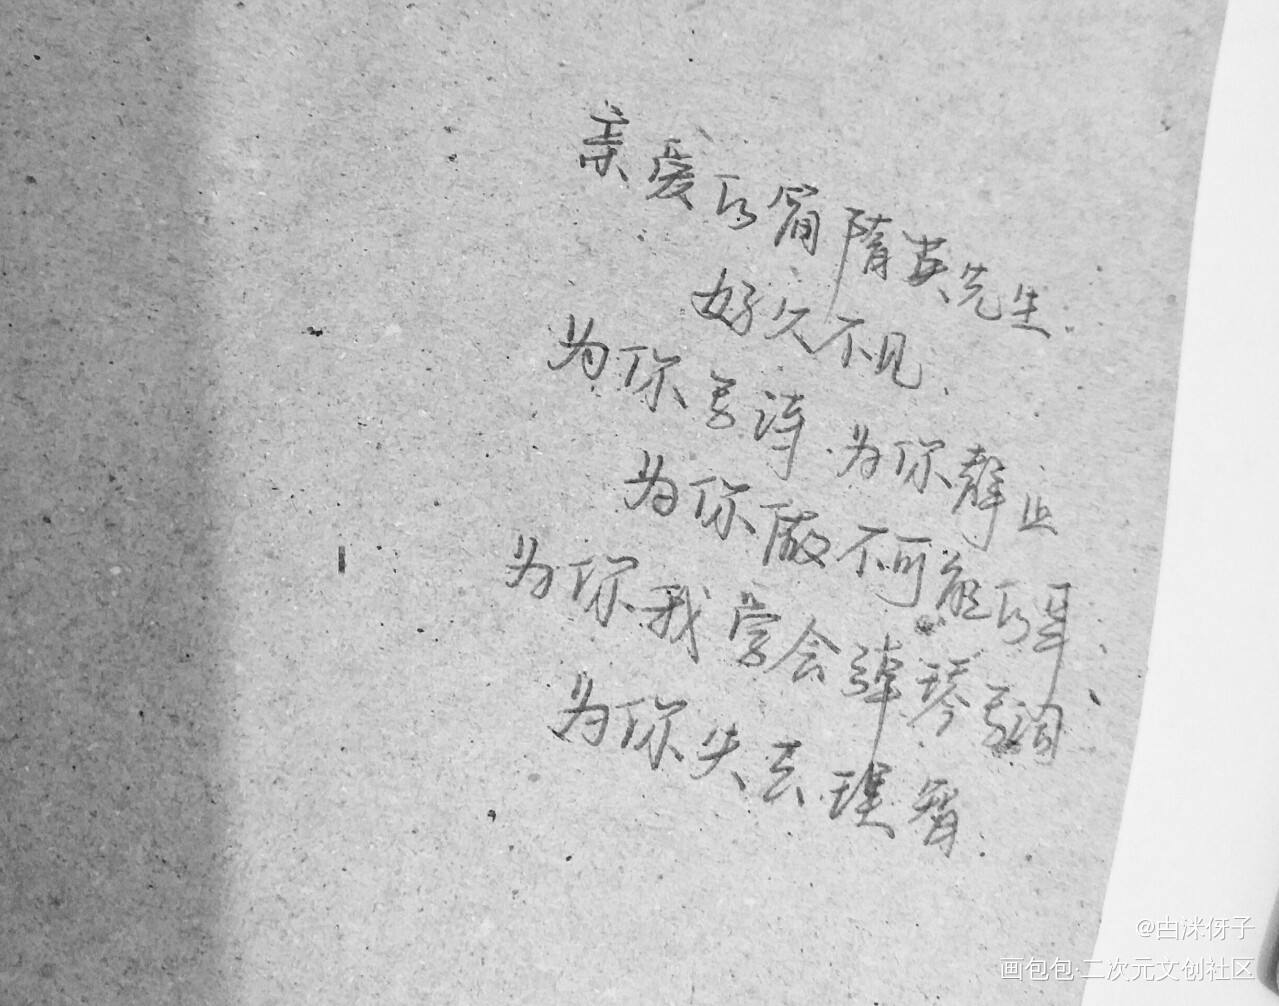 亲爱的甯隋英先生.
好久不见.
为你写诗.为你静止
为你做不可能的事、
为你我学会弹琴写词
为你失去理智.
@由洣伢子
画包包·二次元文创社区